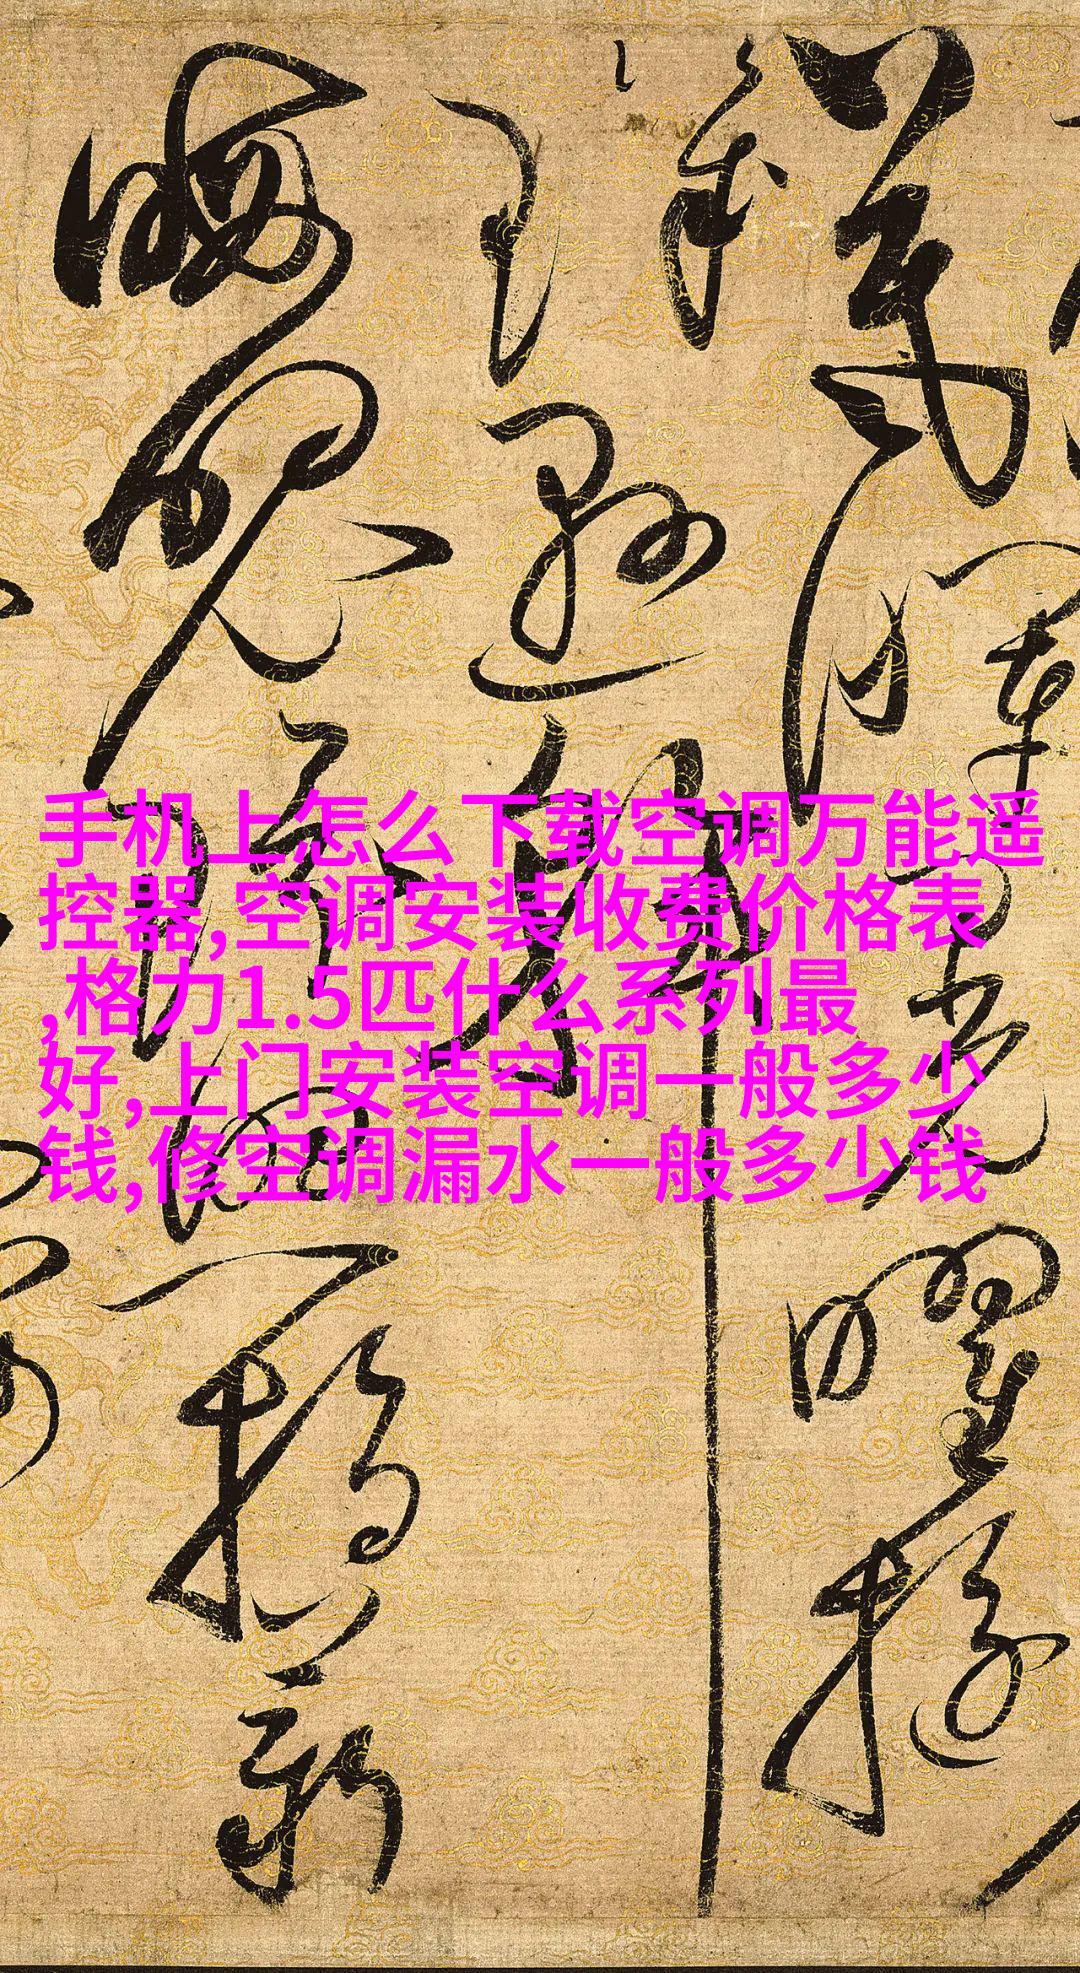 手机上怎么下载空调万能遥
控器,空调安装收费价格表
,格力1.5匹什么系列最
好,上门安装空调一般多少
钱,修空调漏水一般多少钱
暉晃曜
璣懸斡
晦魄環照指薪